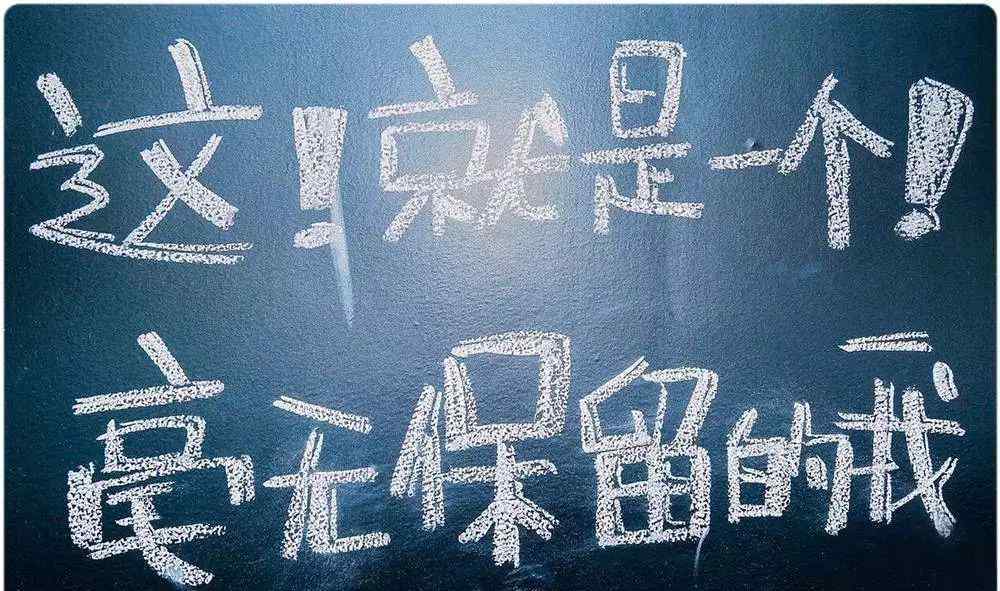 这!就是一个!
毫无保留的我